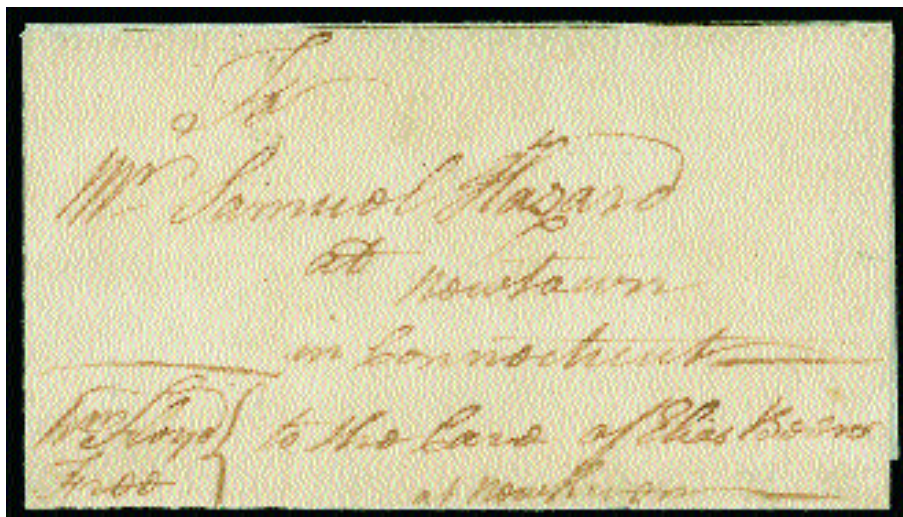 To
Mr. Samuel Hazard
at Newtown
in Connecticut
Wm Floyd
Free
to the Care of Elias Beers
at Newhaven